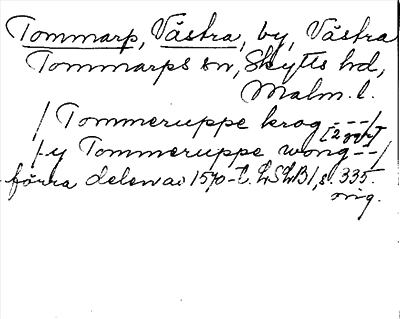 Tommarp, Västra, by, Västra
Tommarps sn, Skytts hd,
Malm. l.
/ Tommeruppe krog --- /
[2 ggr]
/-y Tommeruppe wong -- /
förra delen av 1570-t. LSLB1, s. 335.
orig.